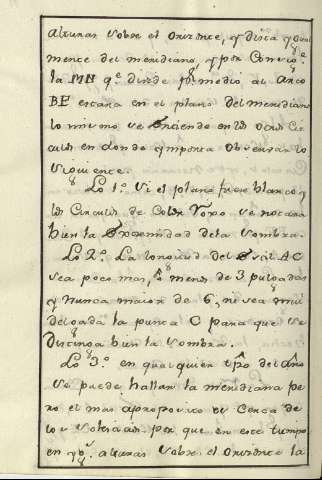 alturas sobre el orizonte, y dista ygual
mente del meridiano, y por consig.e
la MN q.e divide p.r medio al Arco
BE estara en el plano del meridiano
lo mismo se entiende en los otros Cir
culos en donde ymporta observar lo
siguiente.
Lo 1.o si el plano fuere blanco y
los Circulos de Color Roxo se notara
bien la extremidad dela sombra.
Lo 2.o La longitud del estil AC
sea poco mas, o menos de 3 pulgadas
y nunca maior de 6, ni sea mui
delgada la punta C para que se
distinga bien la sombra.
Lo 3.o en qualquier tpo del año
se puede hallar la meridiana pe
ro el mas aproposito es cerca de
los solsticios. por que en este tiempo
en yg.s alturas sobre el orizonte la